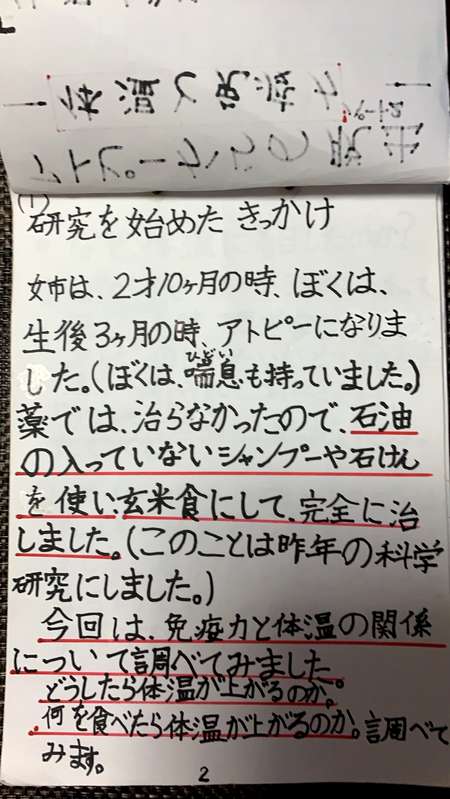 (1)
研究を始めた きっかけ
姉は、2才10ヶ月の時、ぼくは、
生後3ヶ月の時、アトピーになりま
した。(ぼくは、喘息も持っていました。)
ひどい
薬では、治らなかったので、石油
の入っていないシャンプーや石けん
を使い玄米食にして、完全に治
しました。(このことは昨年の科学
研究にしました。)
今回は、免疫力と体温の関係
について調べてみました
どうしたら体温が上がるのか。
何を食べたら体温が上がるのか。調べて
みます。
2